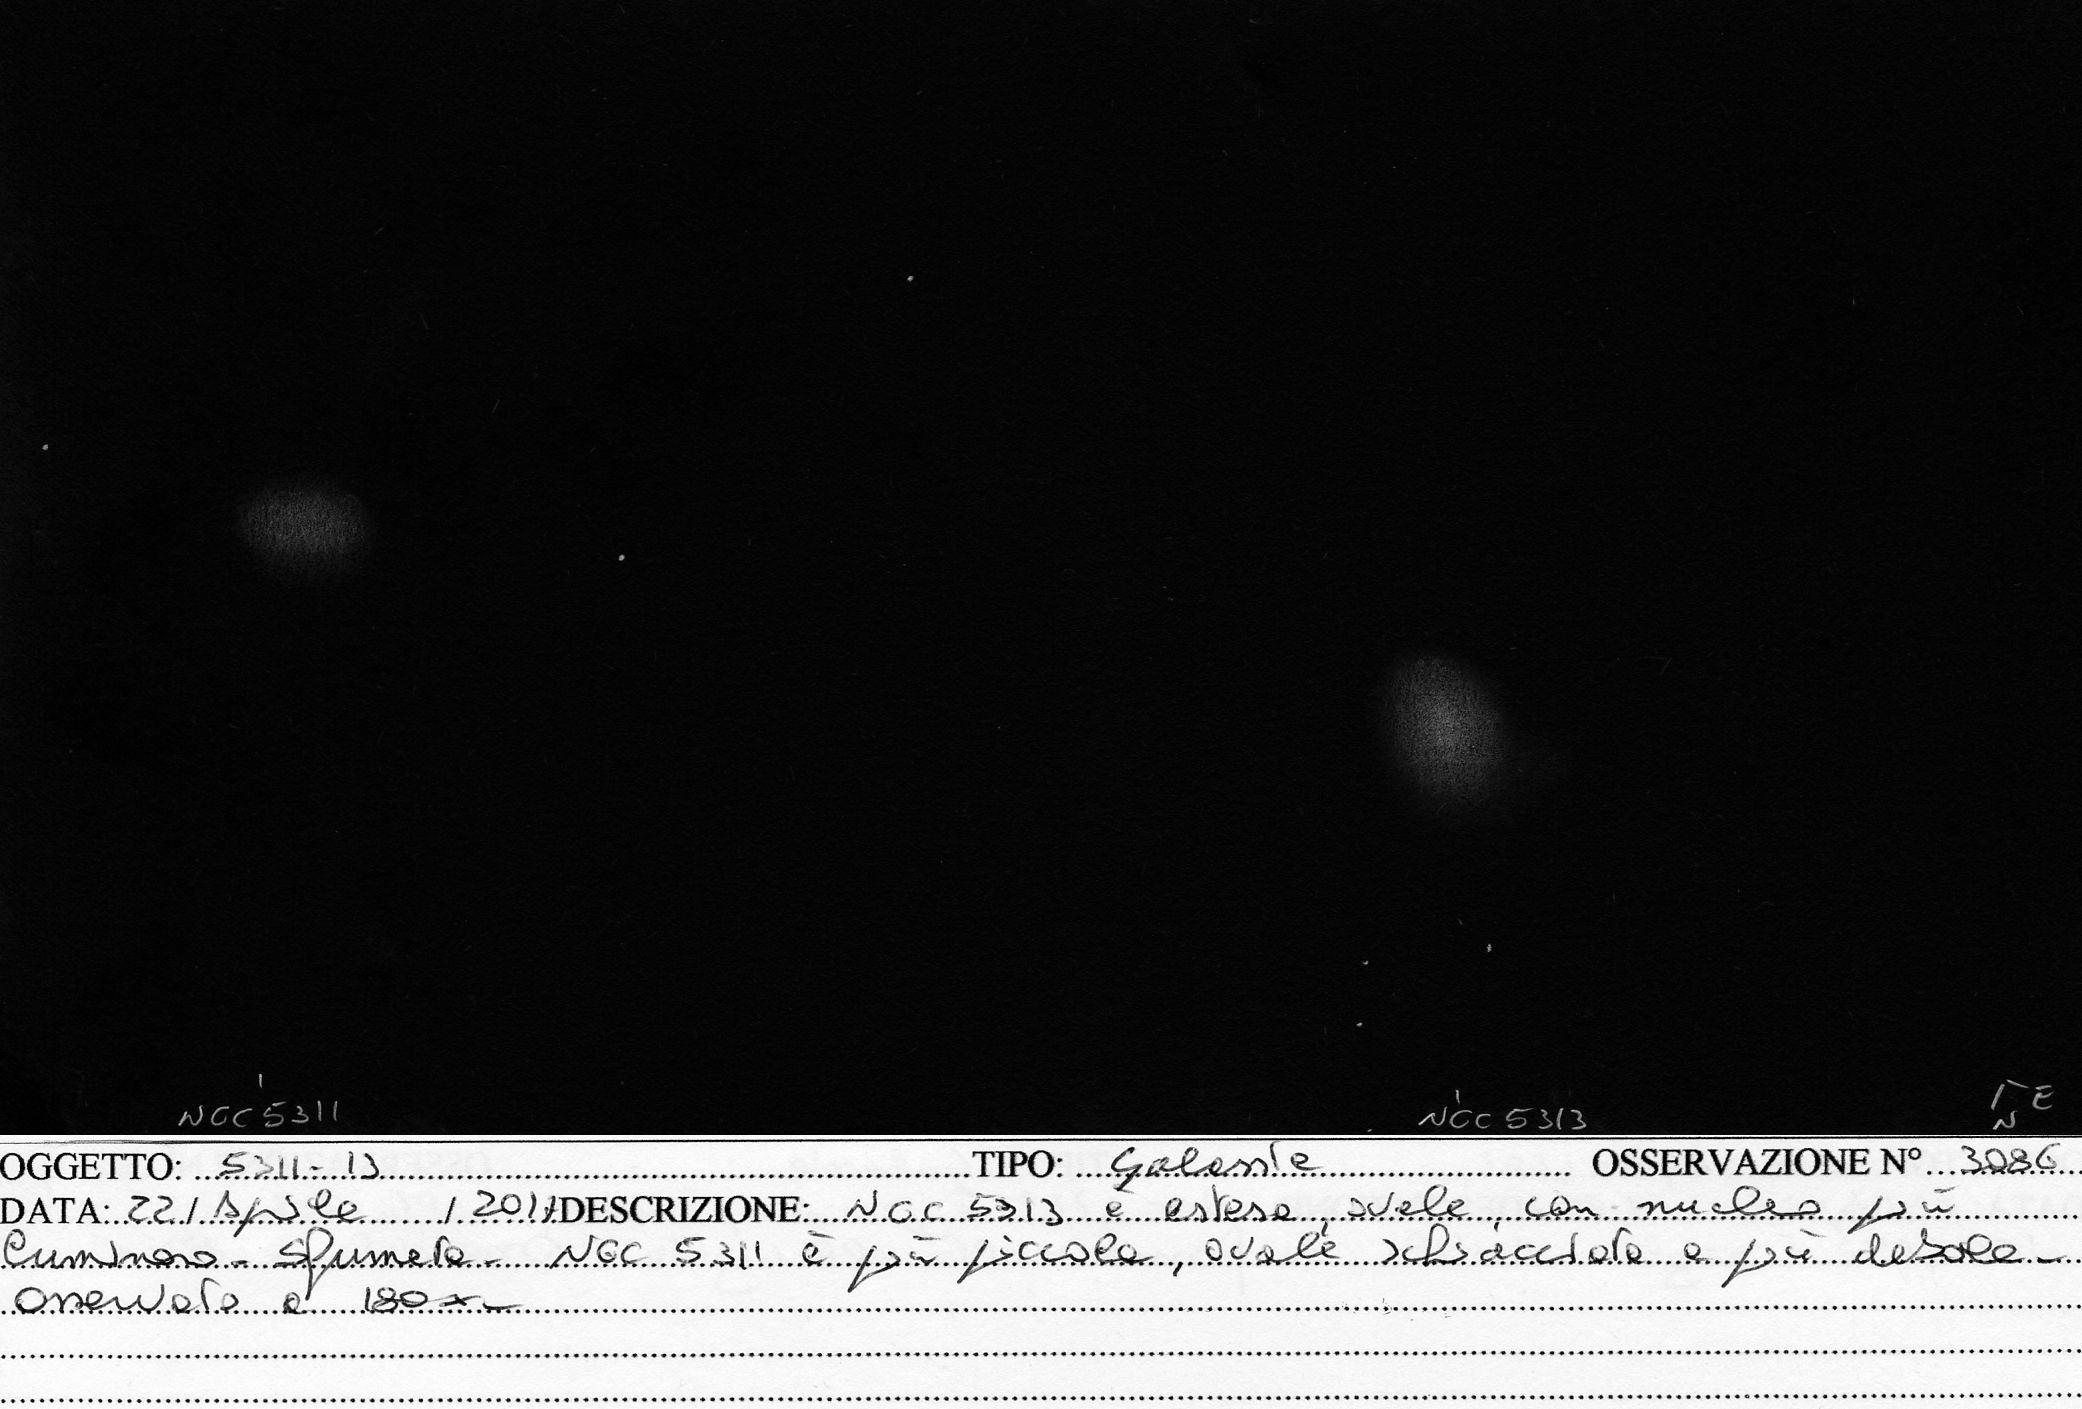 NGC 5311
NGC 5313
E
N
OGGETTO: 5311-13 TIPO: Galassie OSSERVAZIONE N° 3086
DATA: 22 / Aprile / 2011 DESCRIZIONE: NGC 5313 è estesa, ovale, con nucleo più
luminoso - Sfumata - NGC 5311 è più piccola, ovale schiacciata e più debole -
Osservata a 180x -